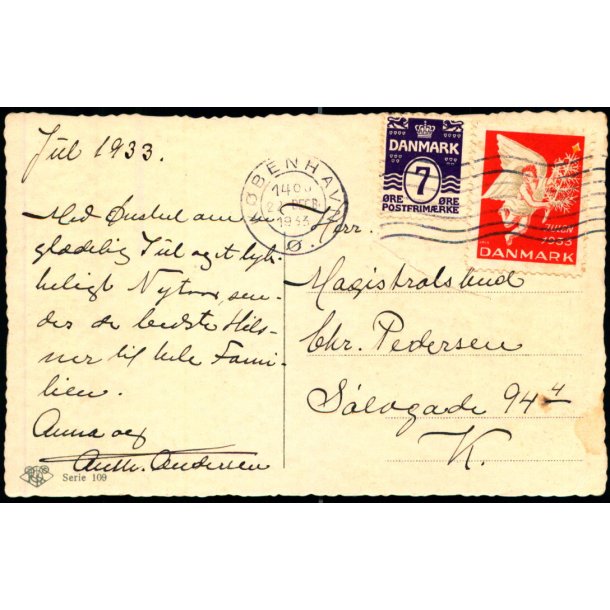 Jul 1933.
Med Ønsket om en
glædelig Jul og et lyk-
keligt Nytaar, sen-
des de bedste Hils-
ner til hele Fami-
lien.
Anna og
Anth. Andersen
Serie 109
KØBENHAVN
1933
Ø.
DANMARK
7
ØRE ØRE
POSTFRIMÆRKE
JULEN
1933
DANMARK
Herr.
Magistratsbud
Chr. Pedersen
Sølvgade 94 4
K.